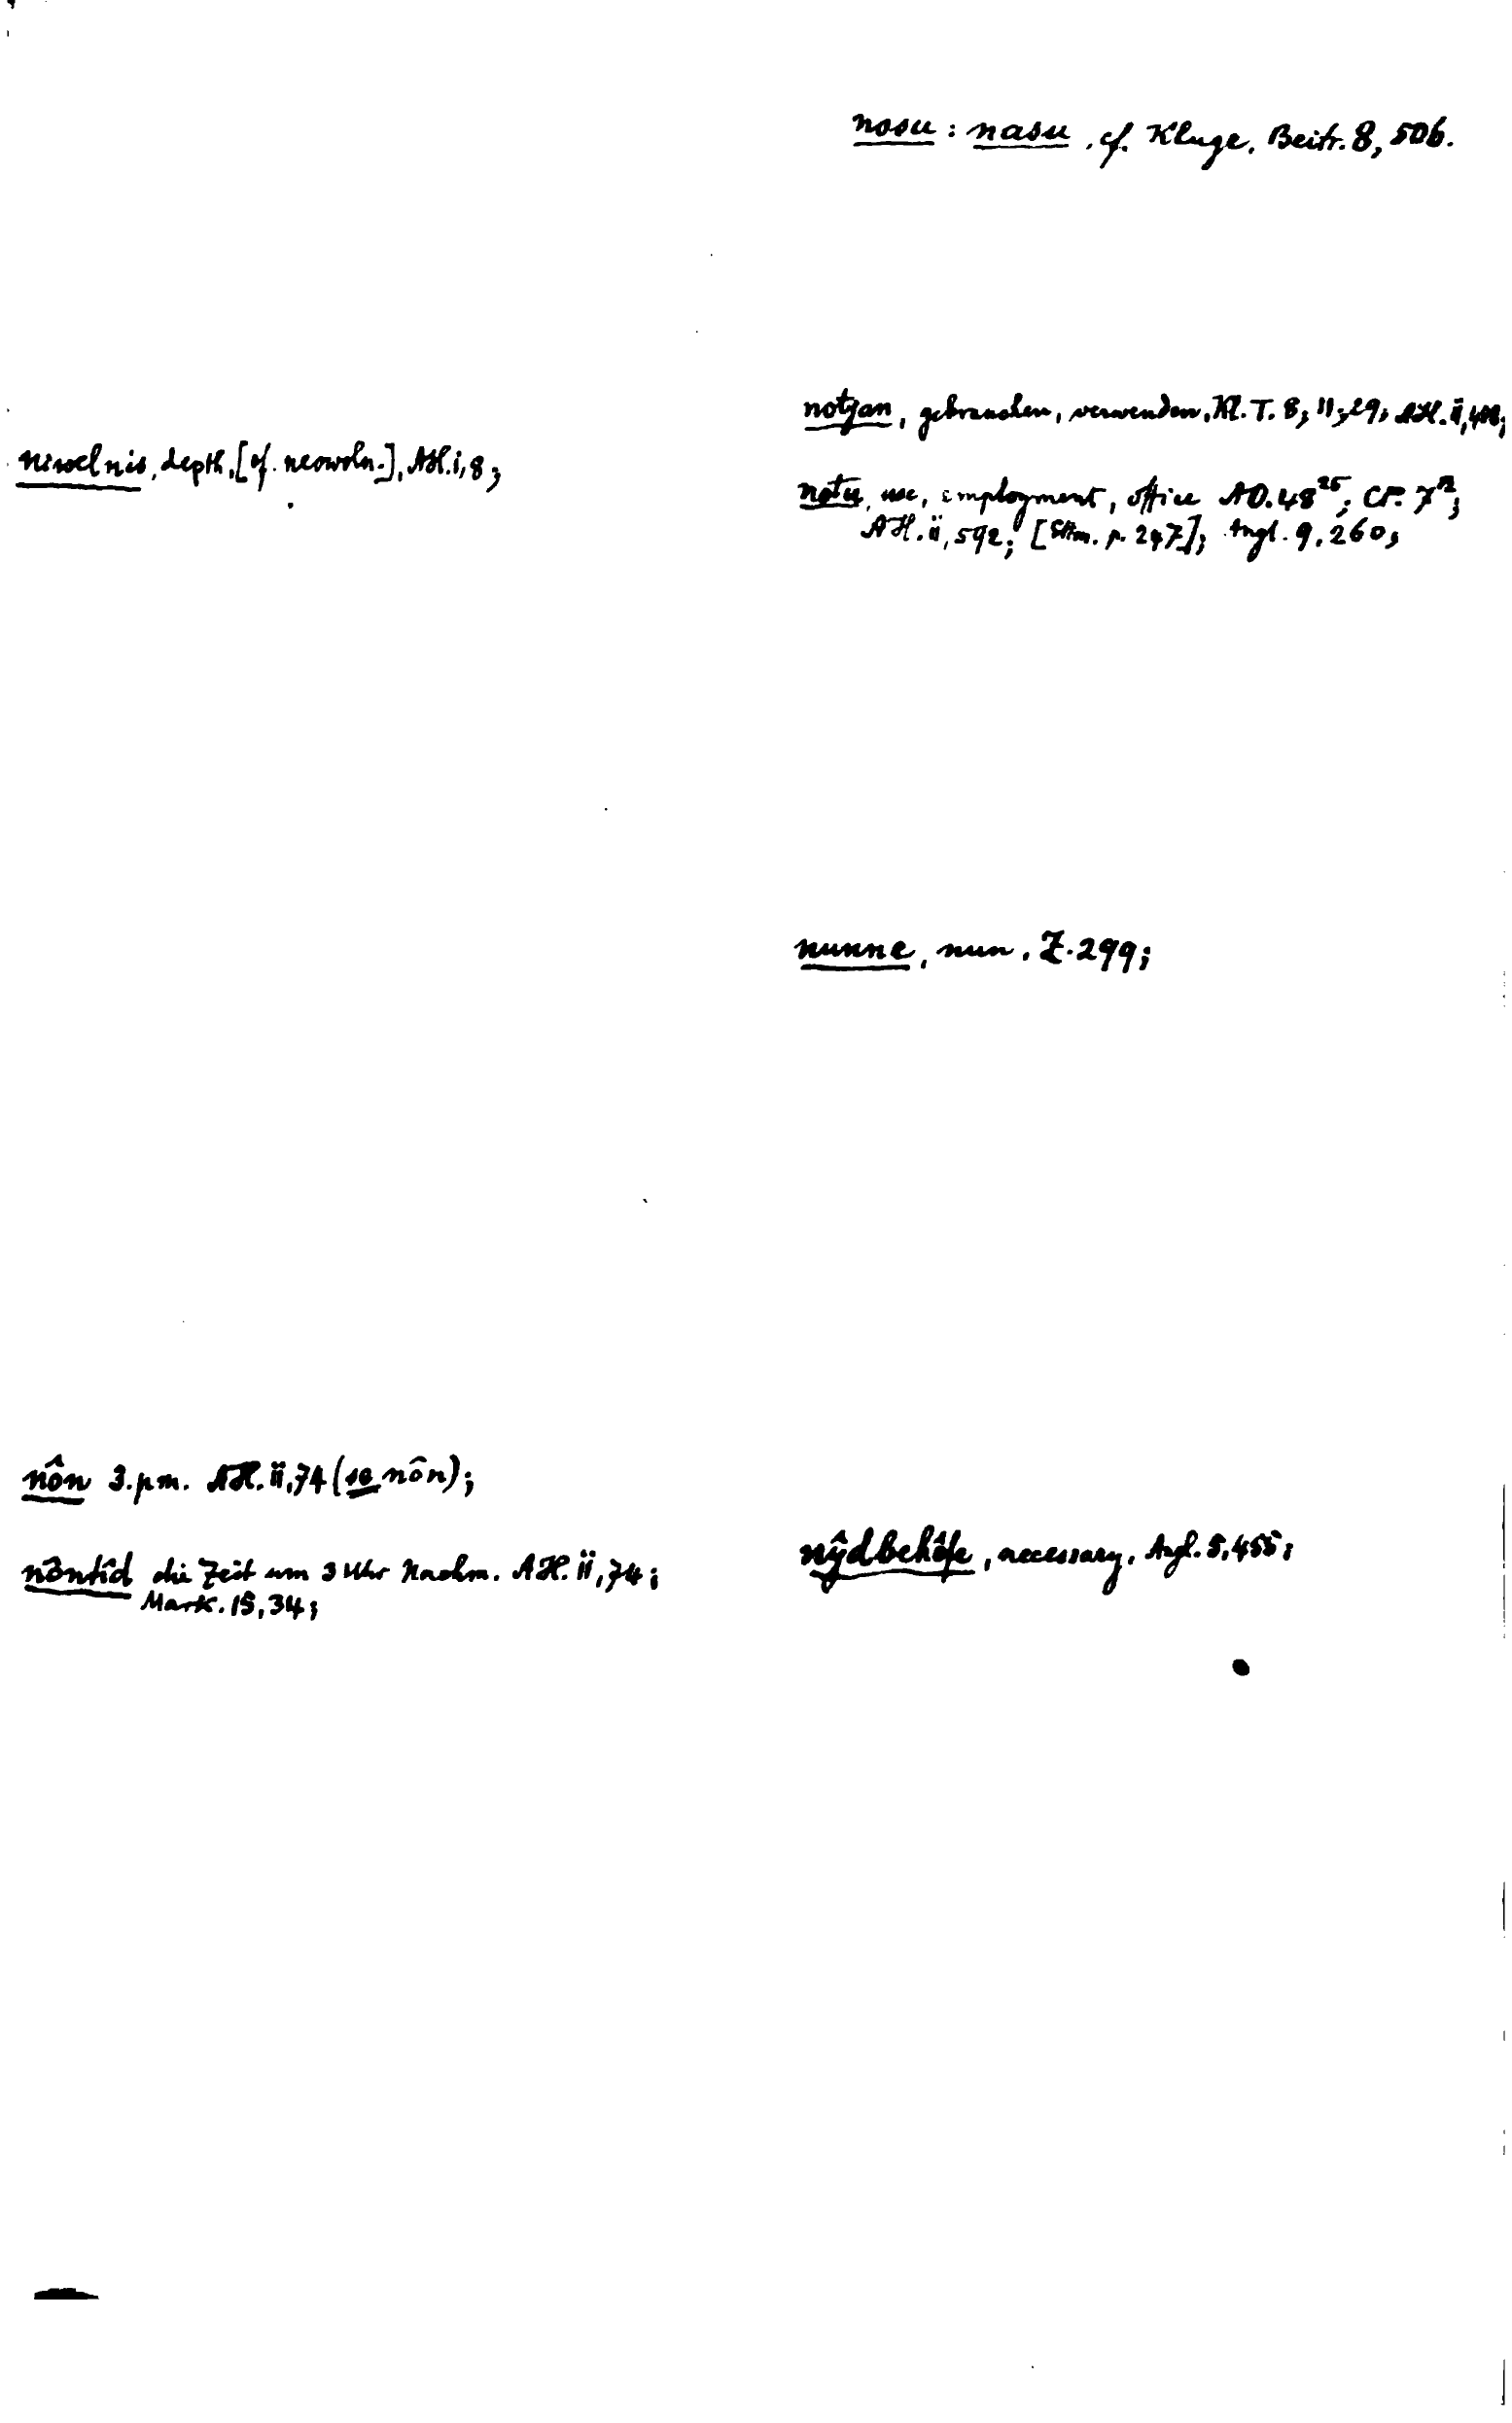 niwelnis, depth, [cf. neowoln.], AH. i, 8;
nôn 3. p.m. AH. ii, 74 (se nôn);
nôntîd die Zeit um 3 Uhr Nachm. AH. ii, 74;
Mark. 15, 34;
nosu : nasu, cf. Kluge, Beitr. 8, 506.
notjan, gebrauchen, verwenden, Kl. T. 8; 11; 29; AH. ii,
notu, use, employment, office AO. 48²⁵; CP. 7¹²;
AH. ii, 592; [p. 247]; Angl. 9. 260;
nunne, nun, Z. 299;
nŷdbehôfe, necessary, Angl. 5, 455;